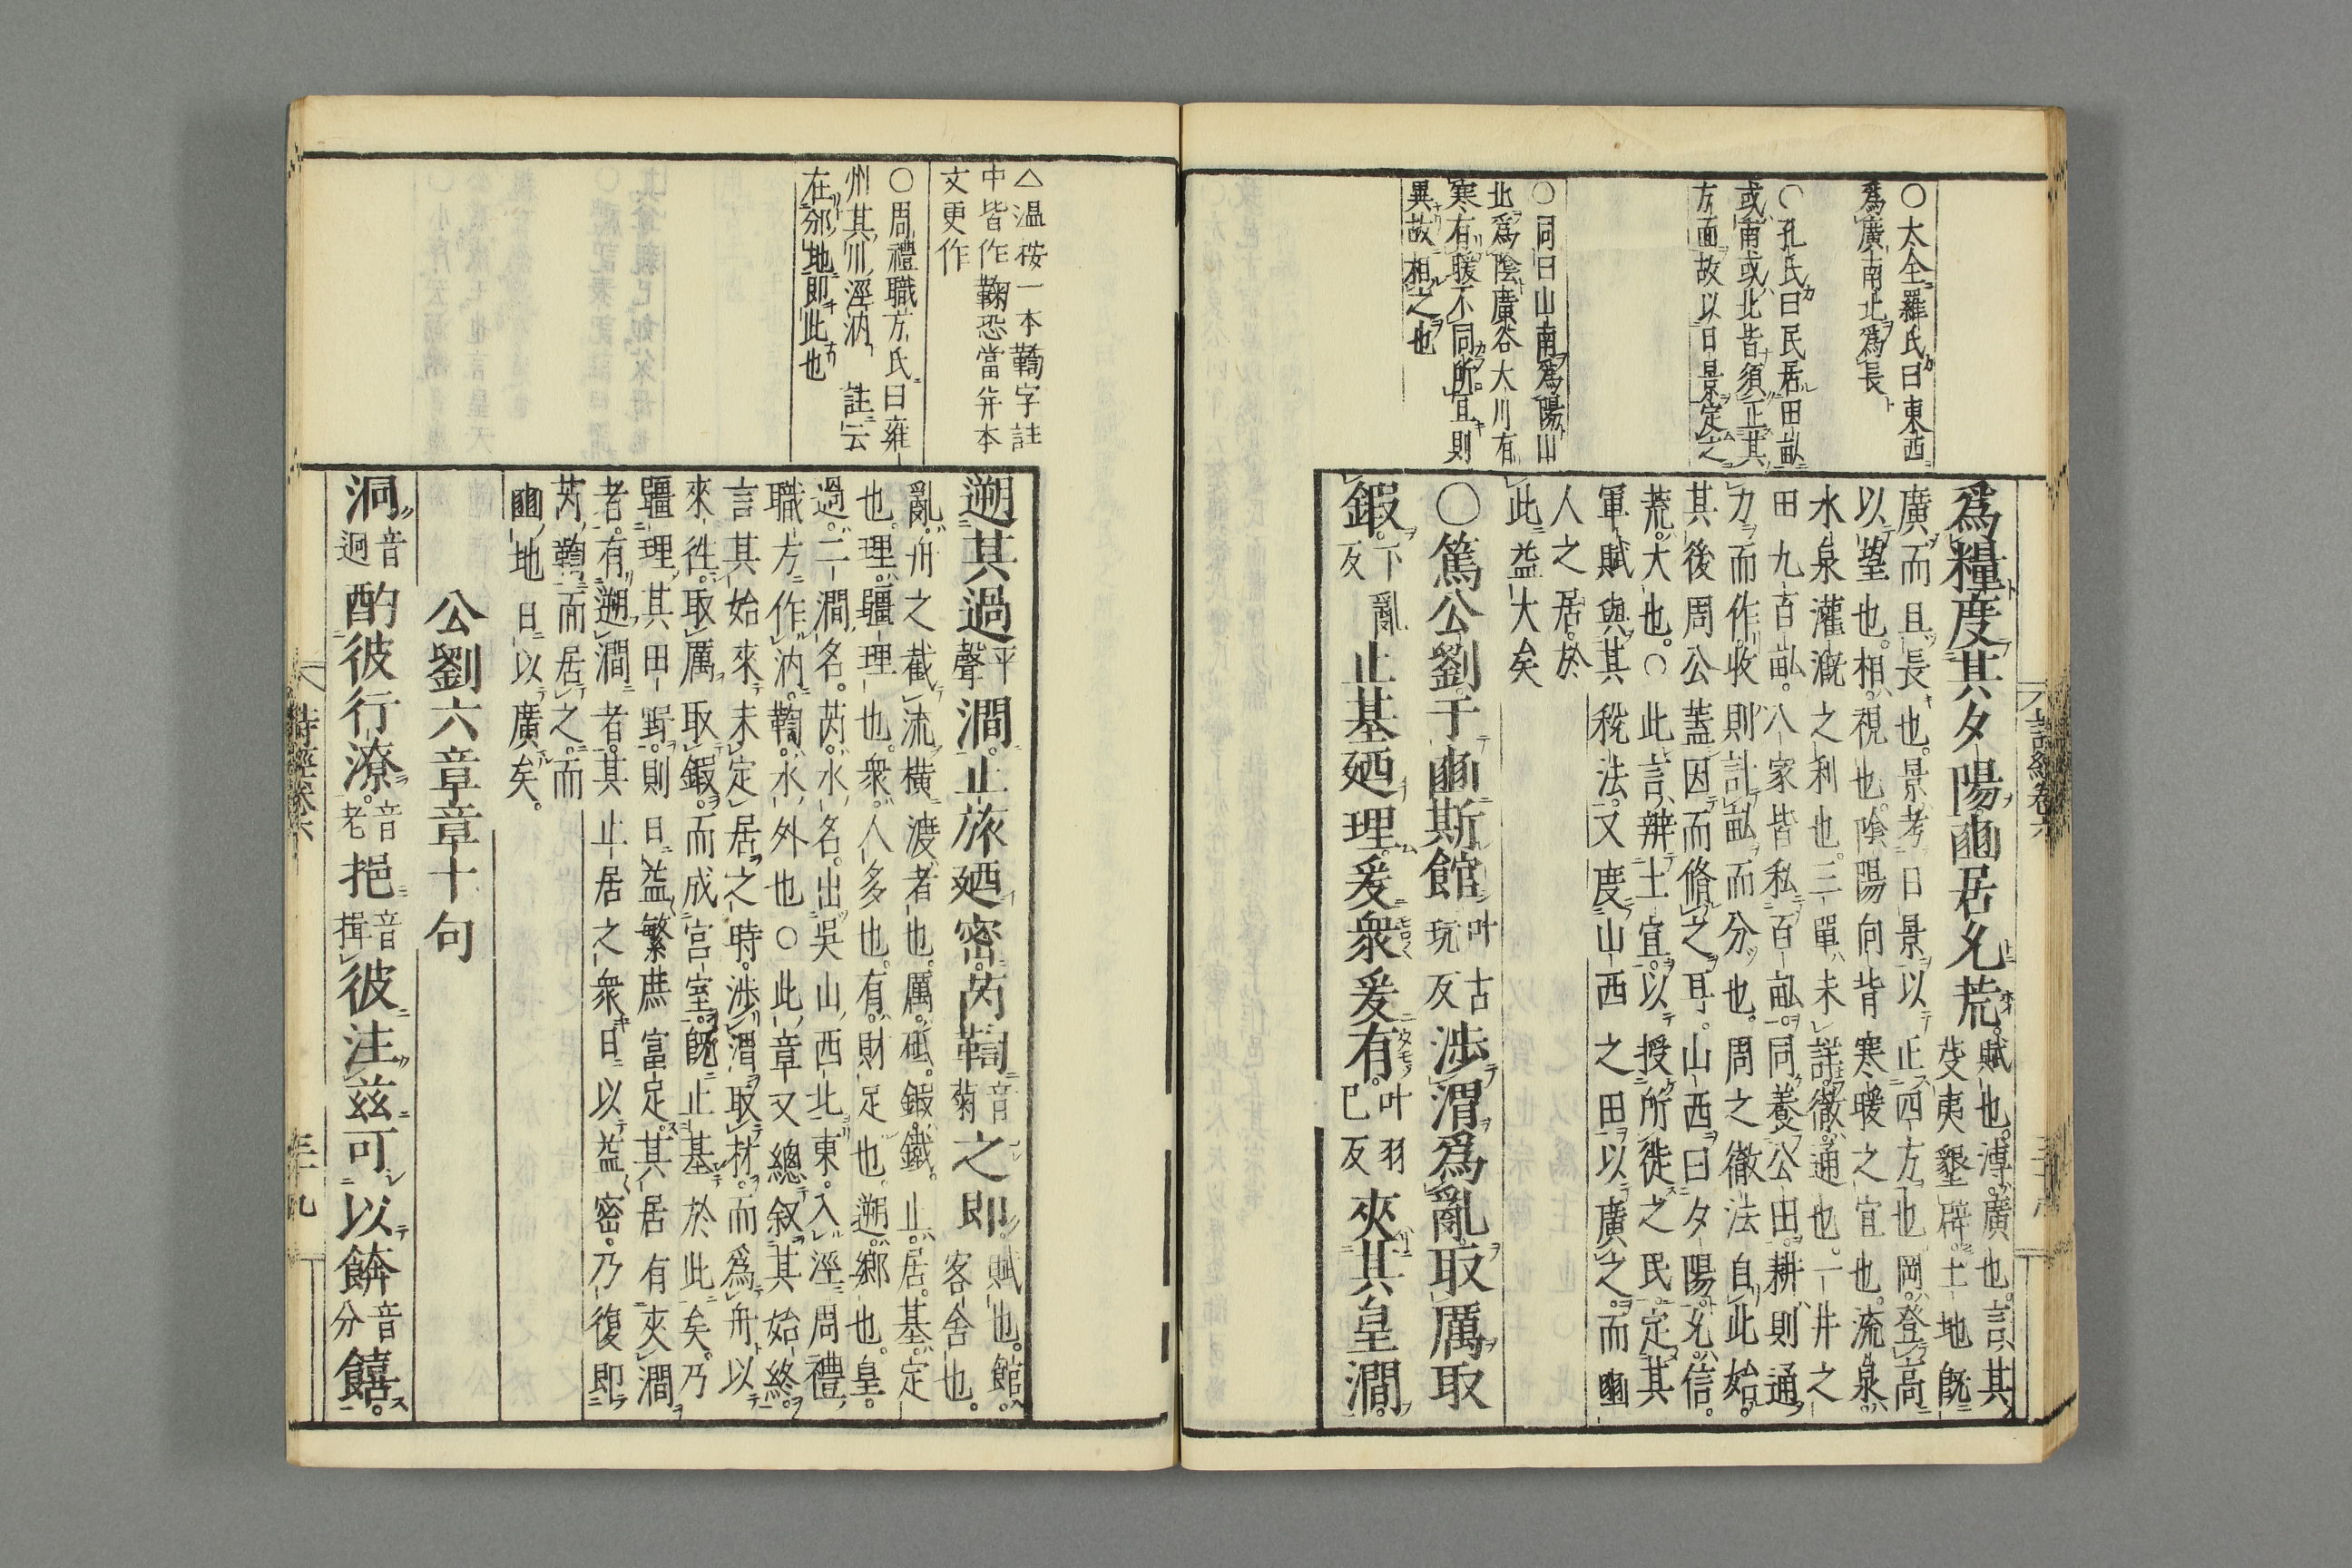 ○太全羅氏曰東西
爲廣南北爲長
○孔氏曰民居田畝
或南或北皆須正其
方面故以日景定之
○同曰山南爲陽山
北爲陰廣谷大川有
寒有暖不同所宜則
異故相之也
爲糧度其夕陽豳居允荒
賦也溥廣也言其
芟夷墾辟土地既
廣而且長也景考日景以正四方也岡登高
以望也相視也陰陽向背寒暖之宜也流泉
水泉灌漑之利也三單未詳徹通也一井之
田九百畝八家皆私百畝同養公田耕則通
力而作收則計畝而分也周之徹法自此始
其後周公蓋因而脩之耳山西曰夕陽允信
荒大也○此言辨土宜以授所徙之民定其
軍賦與其稅法又度山西之田以廣之而豳
人之居於
此益大矣
○篤公劉于豳斯館叶古玩反涉渭爲亂取厲取
鍜下亂反止基廼理爰衆爰有叶羽已反夾其皇澗
△温桉一本鞫字註
中皆作鞠恐當并本
文更作
○周禮職方氏曰雍
州其川涇汭 註云
在邠地即此也
遡其過平聲澗止旅廼密芮鞫音菊之即
賦也館
客舍也
亂舟之截流橫渡者也厲砥鍜鐵止居基定
也理疆理也衆人多也有財足也遡鄉也皇
過二澗名芮水名出吳山西北東入涇周禮
職方作汭鞫水外也○此章又總叙其始終
言其始來未定居之時涉渭取材而爲舟以
來徃取厲取鍜而成宫室既止基於此矣乃
疆理其田野則日益繁庶富足其居有夾澗
者有遡澗者其止居之衆日以益密乃復即
芮鞫而居之而
豳地日以廣矣
公劉六章章十句
洞音迥酌彼行潦音老挹音揖彼注茲可以餴音分饎
詩經卷六